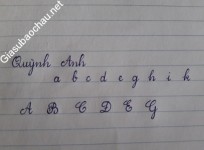 Giasubaochau.net
Quỳnh Anh
a b c d e g h i k
A B C D E G